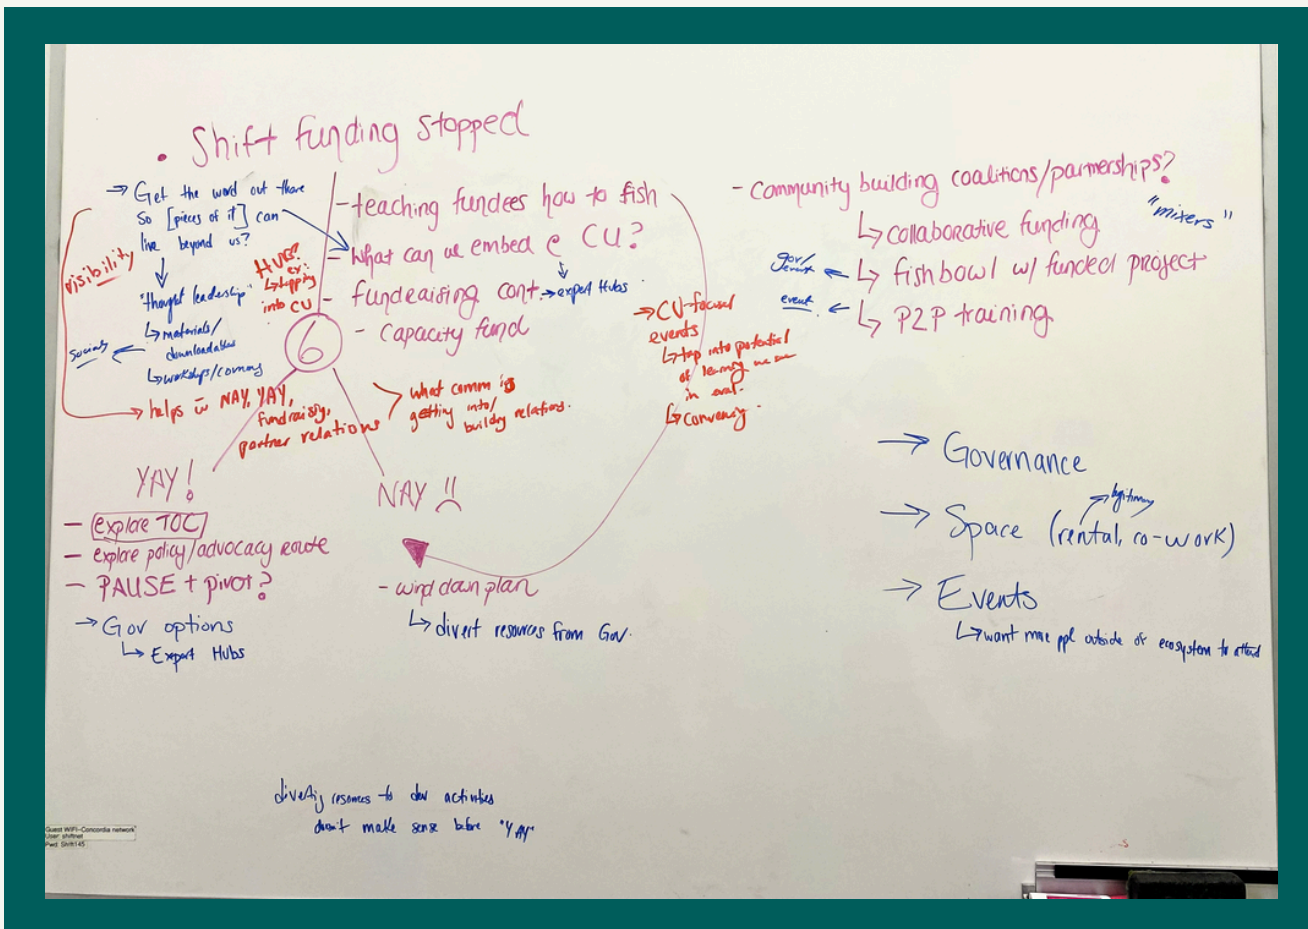 • Shift funding stopped
→ Get the word out there
so [pieces of it] can
live beyond us?
"thought leadership"
↳ materials/
downloadables
socials
↳ workshops/comms
visibility
HUBS?
ex:
↳ tapping
into CU
- teaching fundees how to fish
- What can we embed @ CU?
- fundraising cont. → expert Hubs
- capacity fund
6
→ helps w NAY, YAY,
fundraisig,
partner relations
what comm is
getting into/
buildig relations.
→ CU-focused
events
↳ tap into potential
of learning we see
in eval.
↳ Convening.
YAY!
- explore TOC
- explore policy/advocacy route
- PAUSE + pivot?
→ Gov options
↳ Expert Hubs
NAY !!
- wind down plan
↳ divert resources from Gov.
divertig resources to dev activities
doesn't make sense before "YAY"
- Community building coalitions/partnerships?
"mixers"
↳ collaborative funding
gov/
event ← ↳ fishbowl w/ funded project
event ← ↳ P2P training
→ Governance
→ Space (rental, co-work)
legitimacy
→ Events
↳ want more ppl outside of ecosystem to attend
Guest WiFi-Concordia network
User: shiftnet
Pwd: Shift145